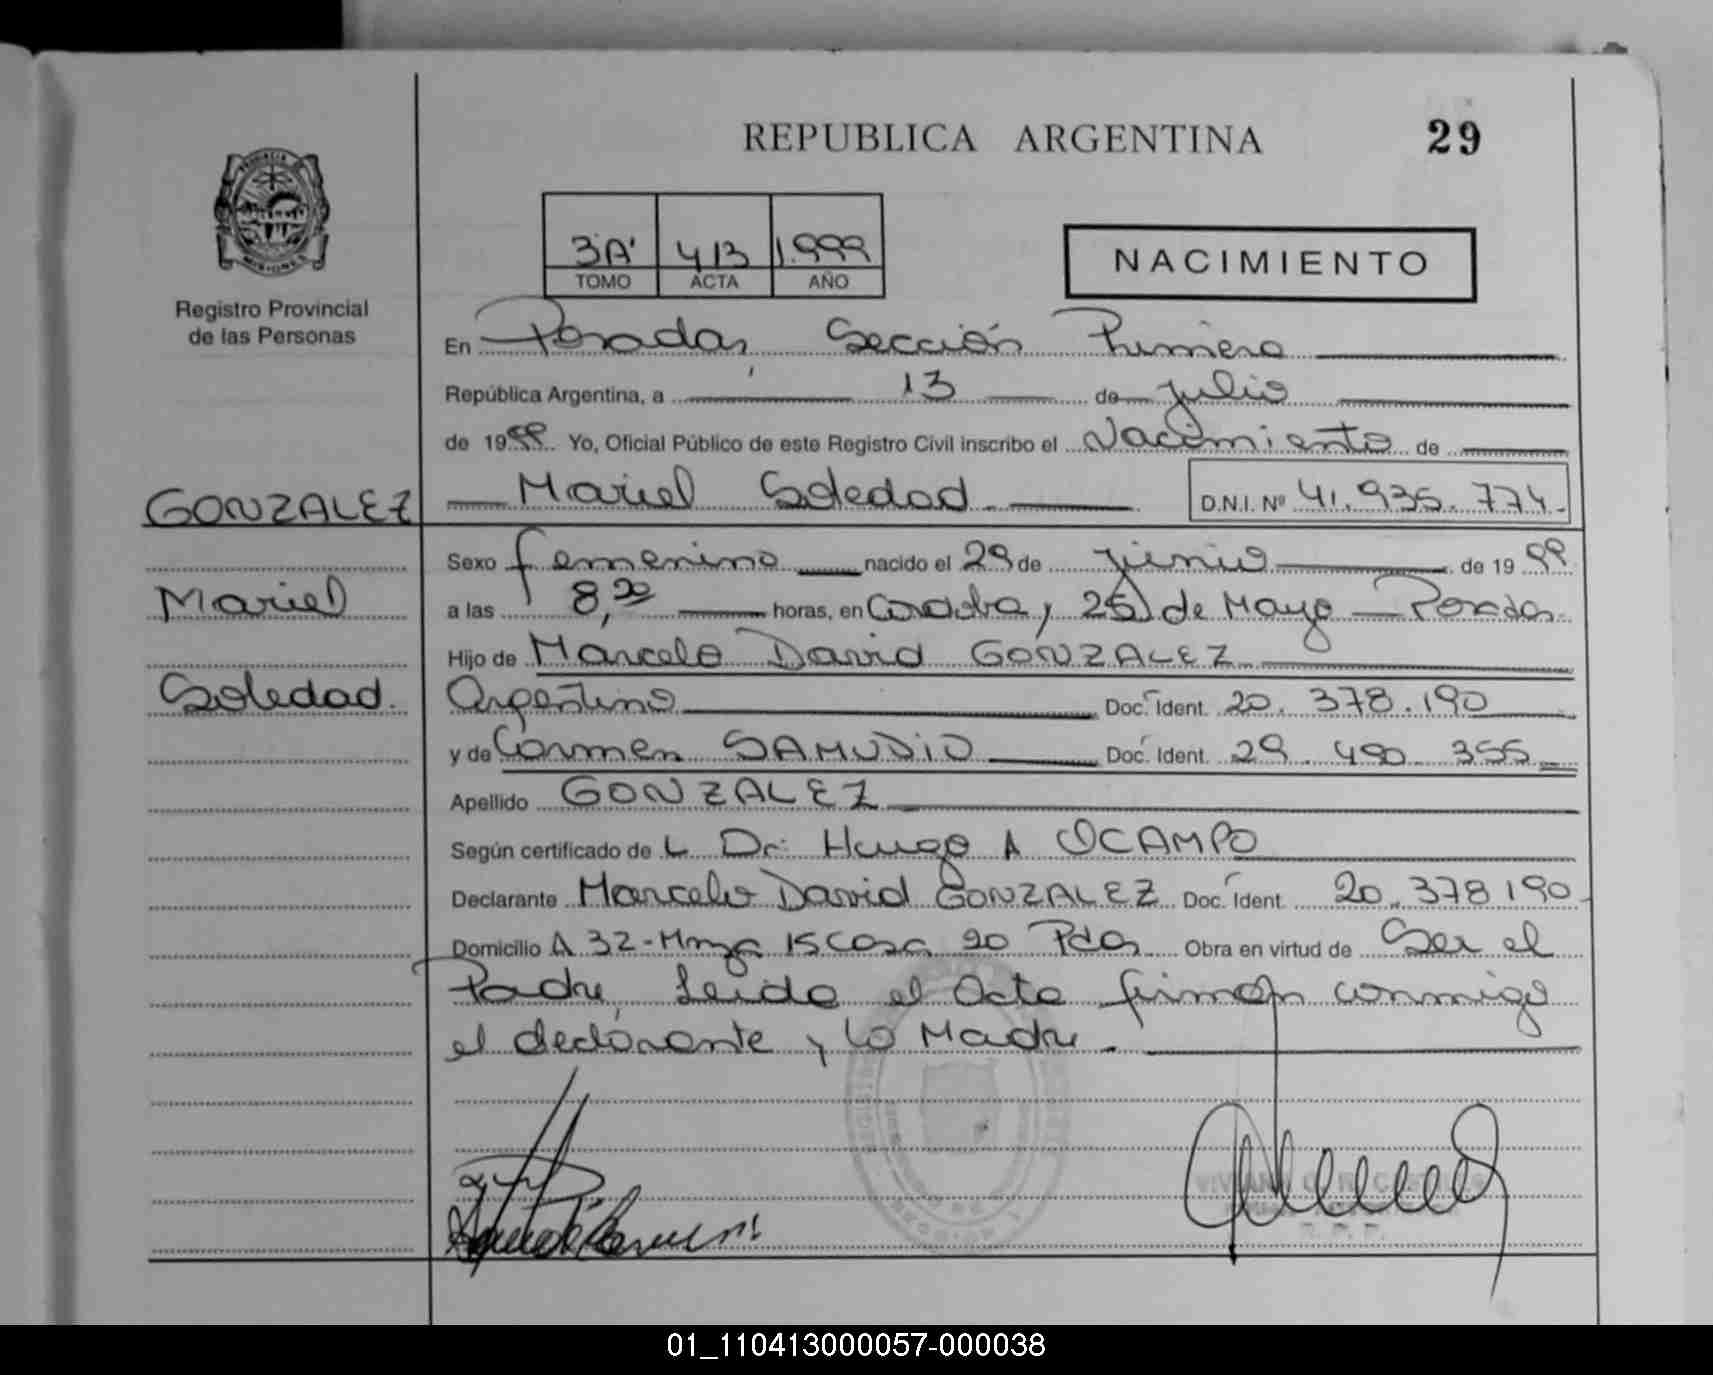 REPUBLICA ARGENTINA
29
3A' 413 1.999
TOMO ACTA AÑO
NACIMIENTO
Registro Provincial
de las Personas
En Posadas, Sección Primera
República Argentina, a 13 de julio
de 1999 Yo, Oficial Público de este Registro Civil inscribo el Nacimiento de
GONZALEZ
Mariel Soledad D.N.I. Nº 41.935.774.-
Sexo femenino nacido el 29 de junio de 1999
Mariel
a las 8,20 horas, en Cordoba y 25 de Mayo - Posadas.
Hijo de Marcelo David GONZALEZ
Soledad.
Argentino Doc. Ident. 20.378.190
y de Carmen SAMUDIO Doc. Ident. 29.490.355
Apellido GONZALEZ
Según certificado de L Dr. Hugo A OCAMPO
Declarante Marcelo David GONZALEZ Doc. Ident. 20.378190-
Domicilio A 32-Mnza 15 Casa 20 Pdas Obra en virtud de Ser el
Padre, Leida el Acta firman conmigo
el declarante y la Madre.
R. P. P.
01_110413000057-000038